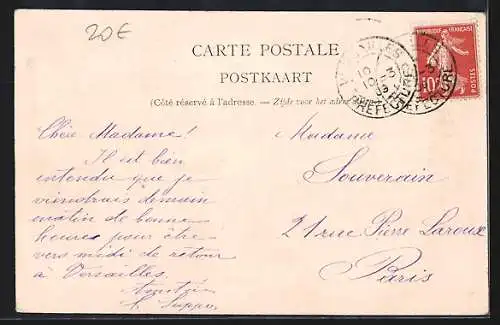 20€
CARTE POSTALE
POSTKAART
(Côté réservé à l'adresse. — Zijde voor het
RÉPUBLIQUE FRANÇAISE
10
POSTES
PREFECTURE
Chère Madame!
Il est bien
entendu que je
viendrais demain
matin de bonne
heure pour être
vers midi de retour
à Versailles.
Madame
Souverain
21 rue Pierre Laroux
Paris